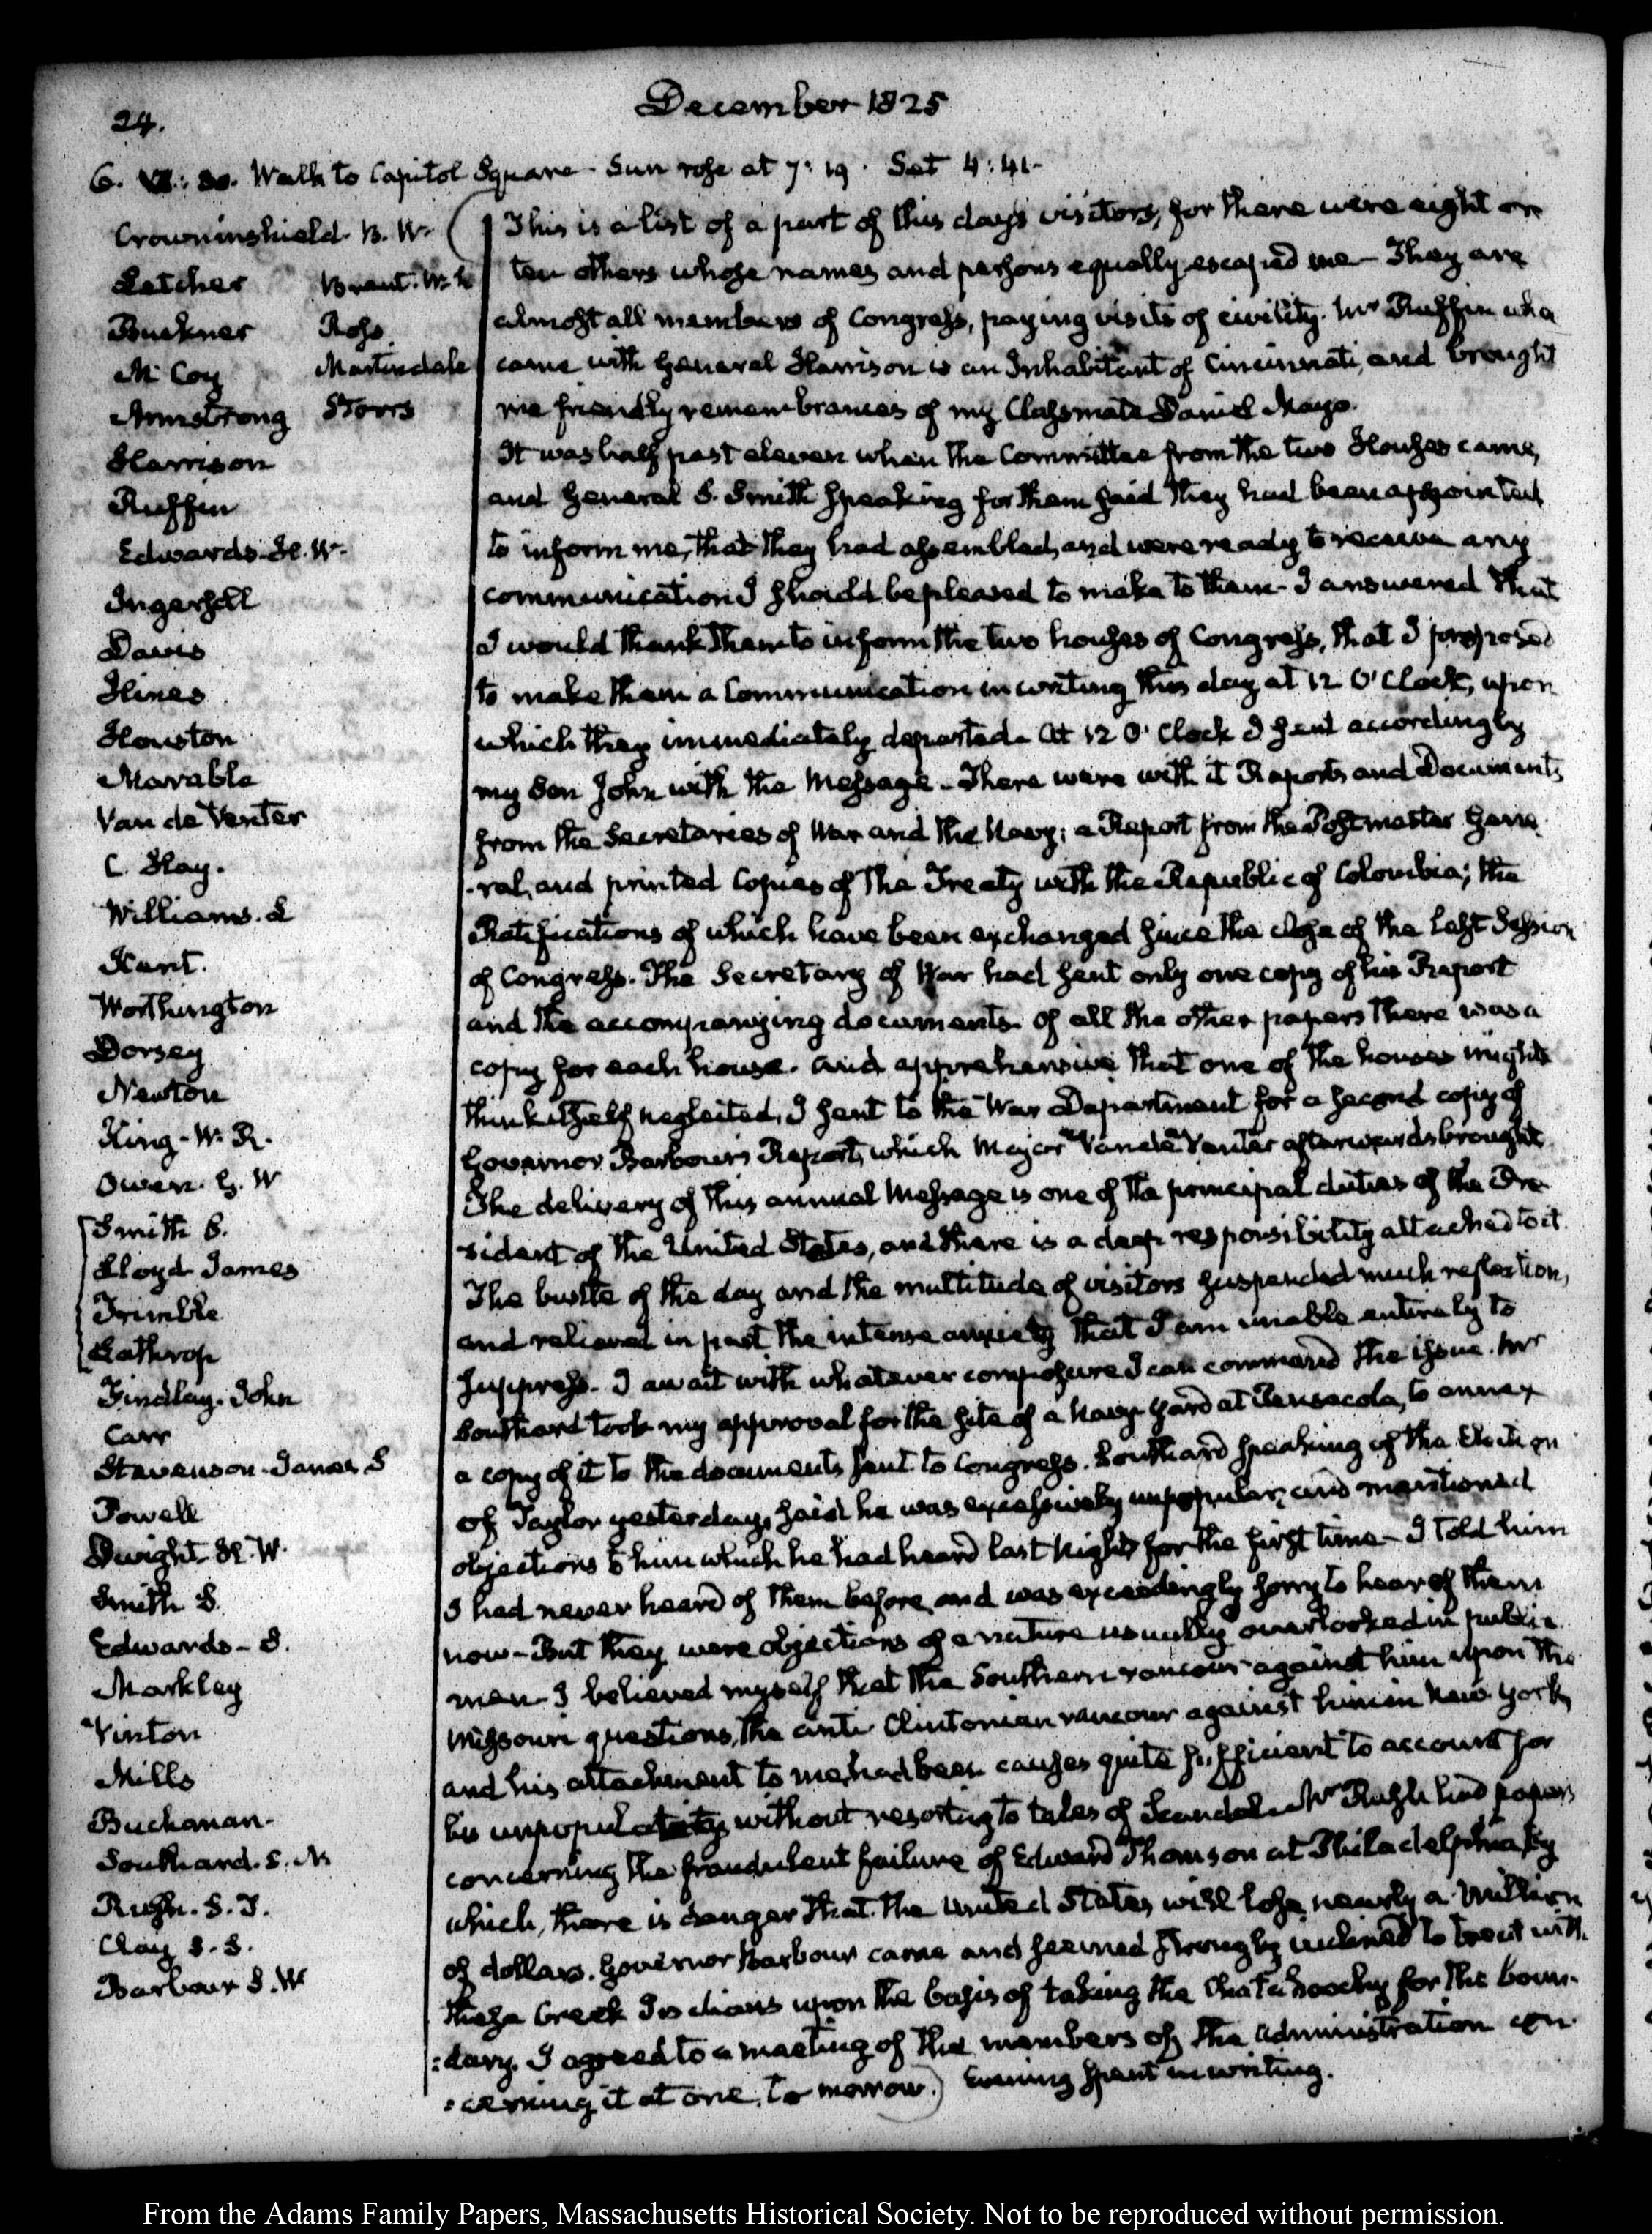 24.
December 1825
6. VI: 30. Walk to Capitol Square. Sun rose at 7:19. Set 4:41-
Crowninshield. B. W.
Letcher Brent. W. L
Buckner Ross
McCoy Martindale
Armstrong Storrs
Harrison
Ruffin
Edwards. H. W.
Ingersoll
Davis
Hines
Houston
Marable
Van de Venter
C. Hay.
Williams. L
Kent.
Worthington
Dorsey
Newton
King - W. R.
Owen. G. W
Smith S.
Lloyd James
Trimble
Lathrop
Findlay. John
Carr
Stevenson. James S
Powell
Dwight. H. W.
Smith S.
Edwards - S.
Markley
Vinton
Mills
Buchanan.
Southard. S. N.
Rush. S. T.
Clay S. S.
Barbour S. W
This is a list of a part of this day's visitors, for there were eight or
ten others whose names and persons equally escaped me - They are
almost all members of Congress, paying visits of civility. Mr Ruffin who
came with General Harrison is an Inhabitant of Cincinnati, and brought
me friendly remembrances of my Classmate Daniel Mayo.
It was half past eleven when the Committee from the two Houses came,
and General S. Smith speaking for them said they had been appointed
to inform me, that they had assembled, and were ready to receive any
communication I should be pleased to make to them - I answered that
I would thank them to inform the two houses of Congress, that I proposed
to make them a Communication in writing this day at 12 O'Clock, upon
which they immediately departed. At 12 O'Clock I sent accordingly
my Son John with the Message - There were with it Reports and Documents
from the Secretaries of War and the Navy; a Report from the Postmaster Gene
-ral, and printed Copies of the Treaty with the Republic of Colombia; the
Ratifications of which have been exchanged since the close of the last Session
of Congress. The Secretary of War had sent only one copy of his Report
and the accompanying documents. Of all the other papers there was a
copy for each house. And apprehensive that one of the houses might
think itself neglected, I sent to the War Department for a second copy of
Governor Barbour's Report, which Major Vande Venter afterwards brought.
The delivery of this annual Message is one of the principal duties of the Pre
sident of the United States, and there is a deep responsibility attached to it.
The bustle of the day and the multitude of visitors suspended much reflection,
and relieved in part the intense anxiety that I am unable entirely to
suppress. I await with whatever composure I can command the issue. Mr
Southard took my approval for the site of a Navy Yard at Pensacola, to annex
a copy of it to the documents sent to Congress. Southard speaking of the Election
of Taylor yesterday, said he was excessively unpopular, and mentioned
objections to him which he had heard last Night for the first time - I told him
I had never heard of them before and was exceedingly sorry to hear of them
now - But they were objections of a nature usually overlooked in public
men - I believed myself that the Southern rancour against him upon the
Missouri questions, the anti Clintonian rancour against him in New York,
and his attachment to me, had been causes quite sufficient to account for
his unpopularity without resorting to tales of Scandal. Mr Rush had papers
concerning the fraudulent failure of Edward Thomson at Philadelphia by
which, there is danger that the United States will lose nearly a Million
of dollars. Governor Barbour came and seemed strongly inclined to treat with
these Creek Indians upon the basis of taking the Chatahoochy for the boun-
:dary. I agreed to a meeting of the members of the Administration con
:cerning it at one, to morrow.) Evening spent in writing.
From the Adams Family Papers, Massachusetts Historical Society. Not to be reproduced without permission.